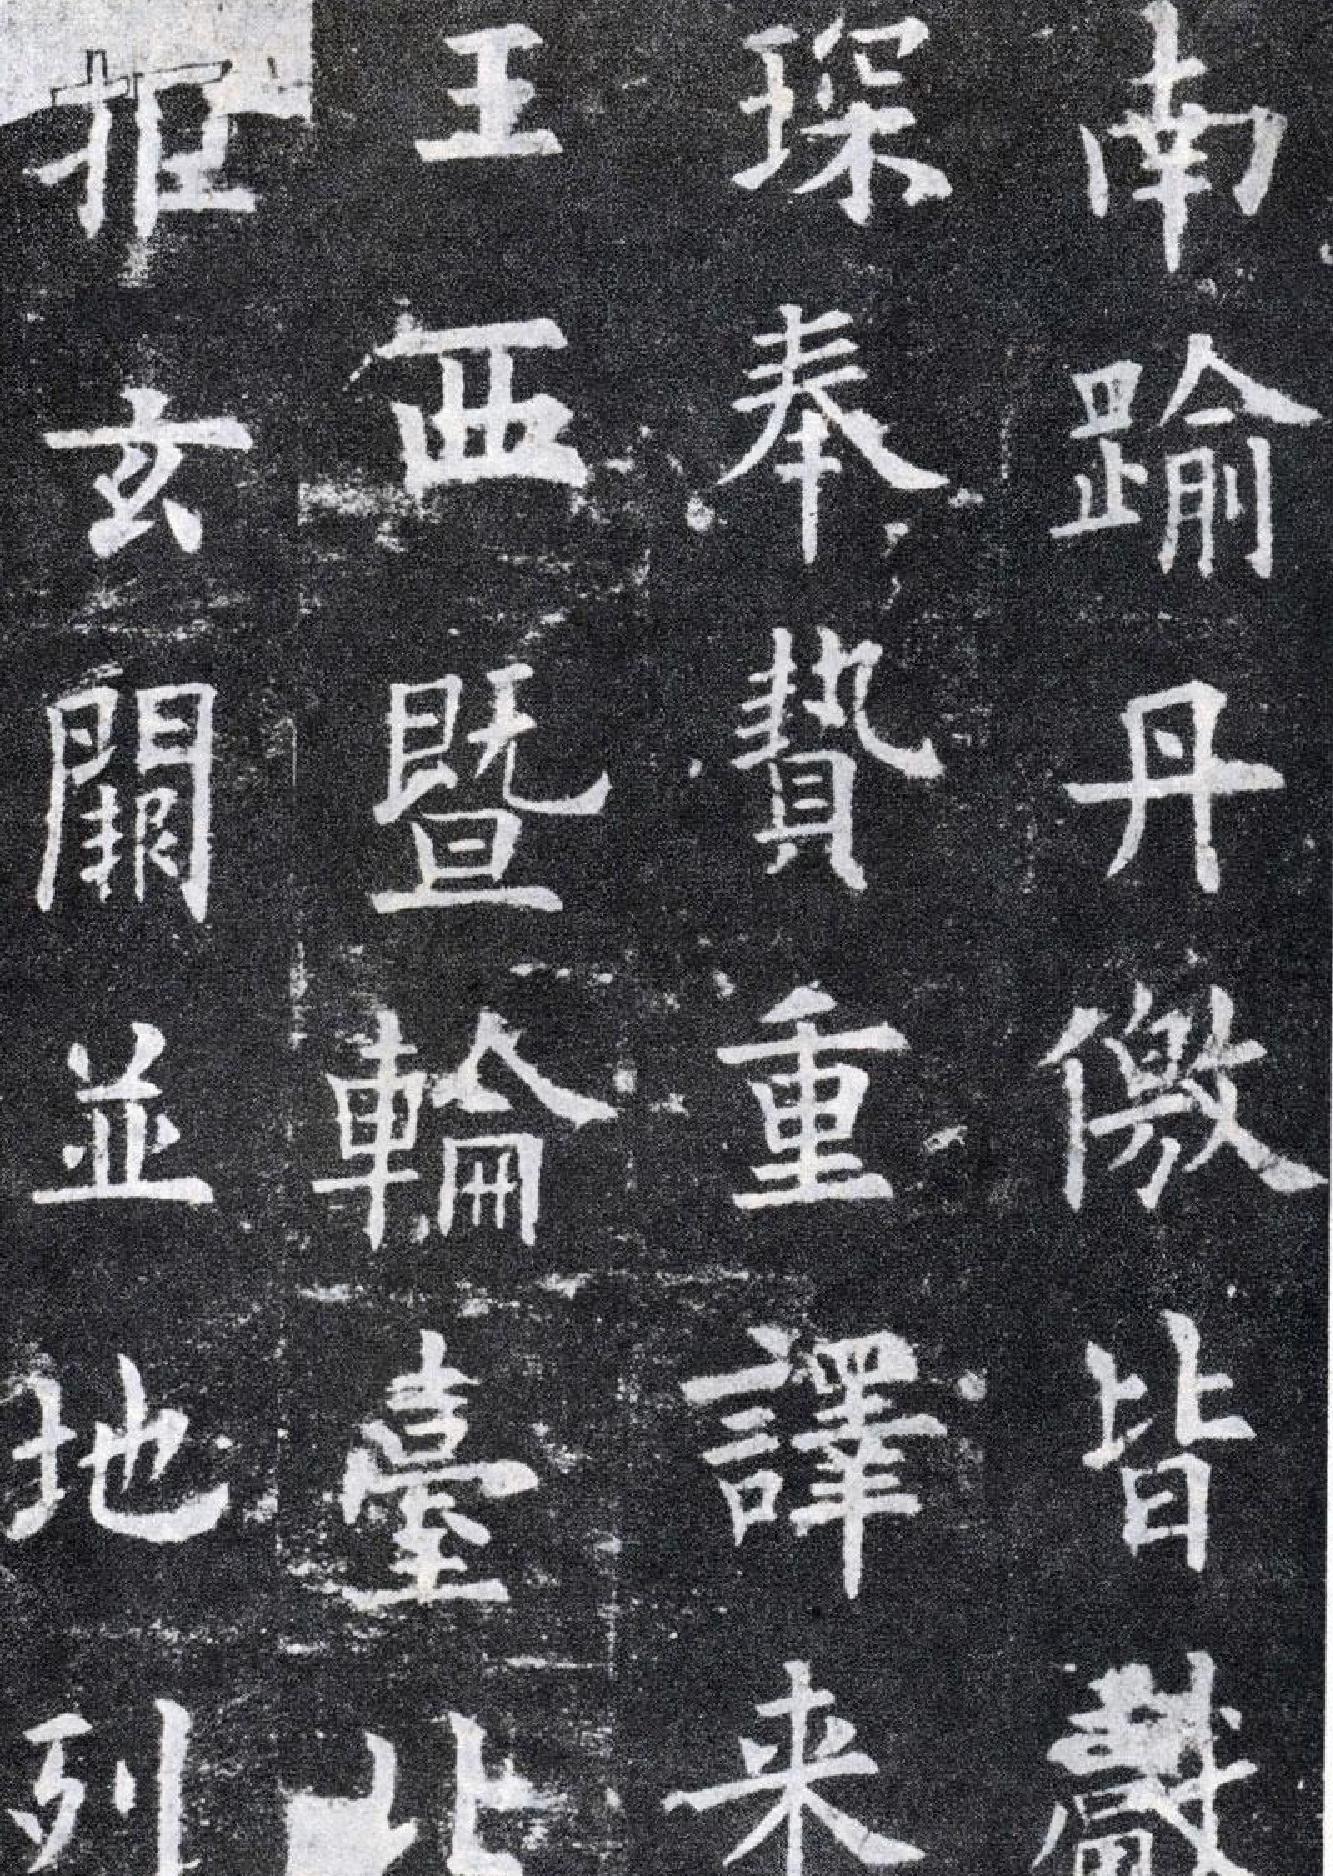 南踰丹儌皆獻
琛奉贄重譯來
王西暨輪臺北
拒玄闕並地列